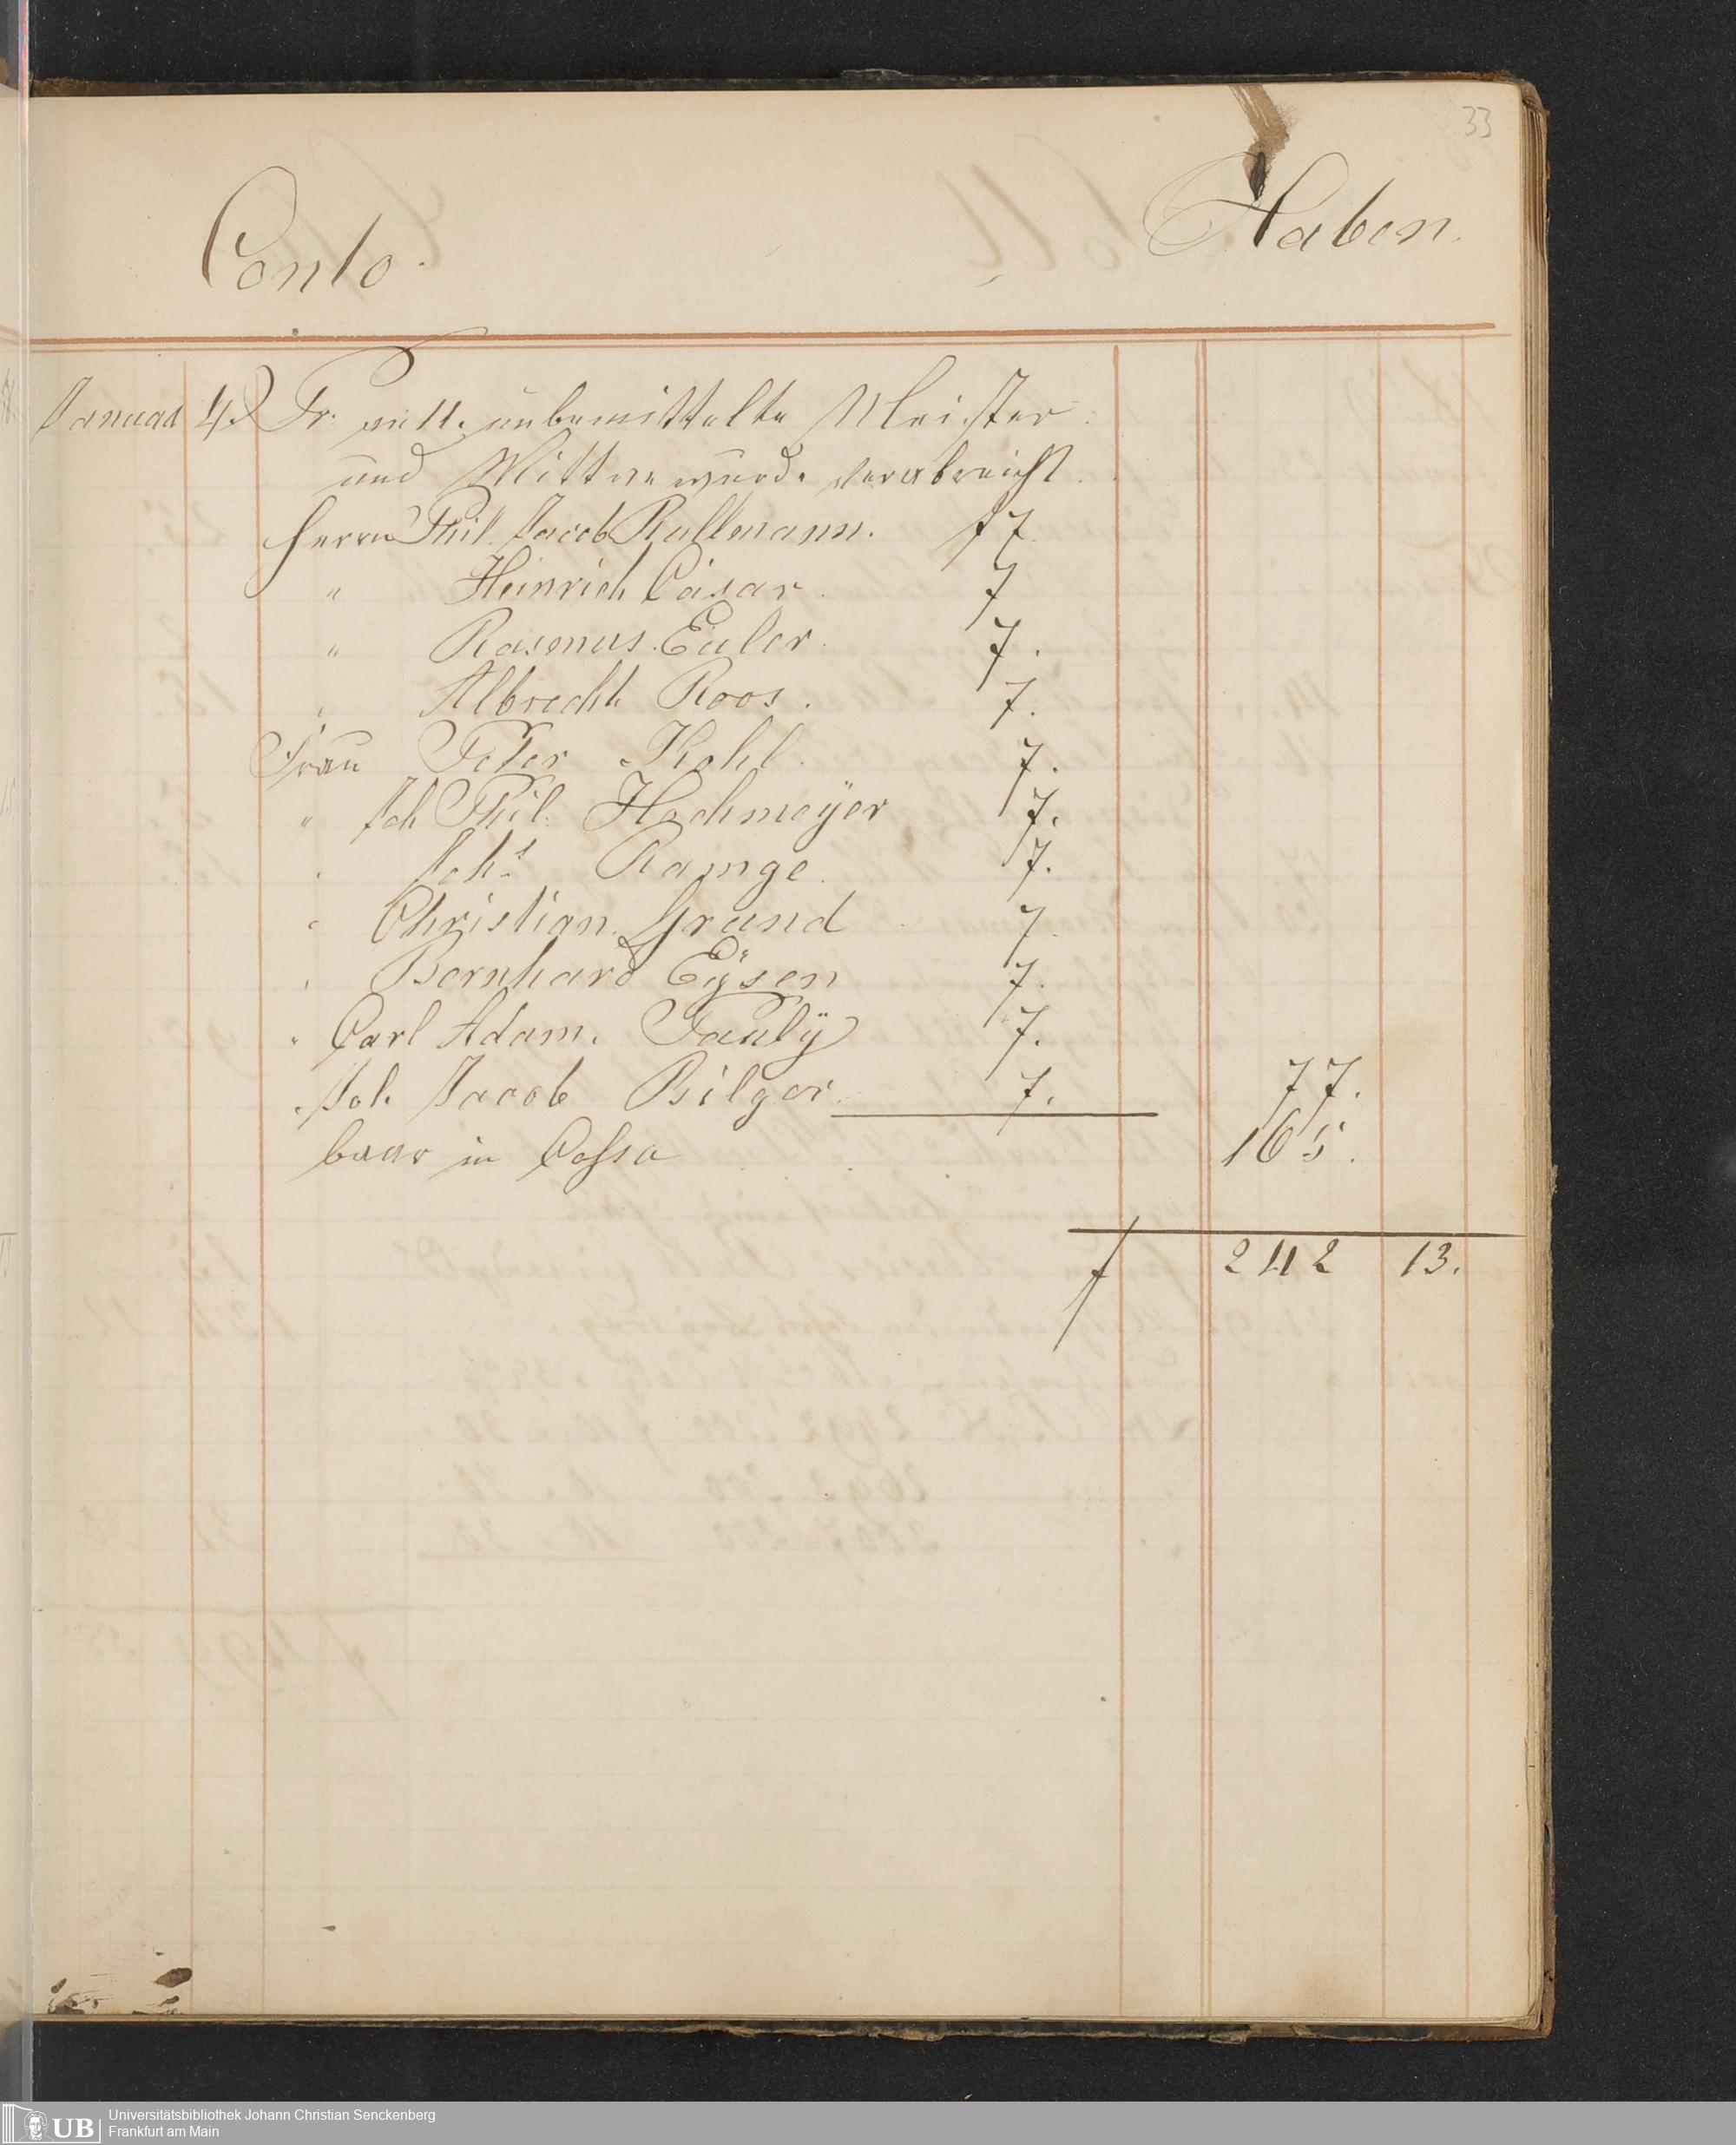 33
Conto.
Haben.
Januar 4. Pr. unbemittelte Meister
und Wittwe wurde verabreicht.
Herrn Phil. Jacob Rullmann. f 7.
" Heinrich Cäsar. 7
" Rasmus Euler. 7.
" Albrecht Roos. 7.
Frau Peter Kohl. 7.
" Joh Phil. Hochmeÿer 7.
" Johs Ramge. 7.
" Christian Grund 7.
" Bernhard Eÿsen 7.
" Carl Adam. Paulÿ 7.
" Joh. Jacob Bilger. 7. 77.
baar in Cassa 165.
f 242 13.
UB Universitätsbibliothek Johann Christian Senckenberg
Frankfurt am Main